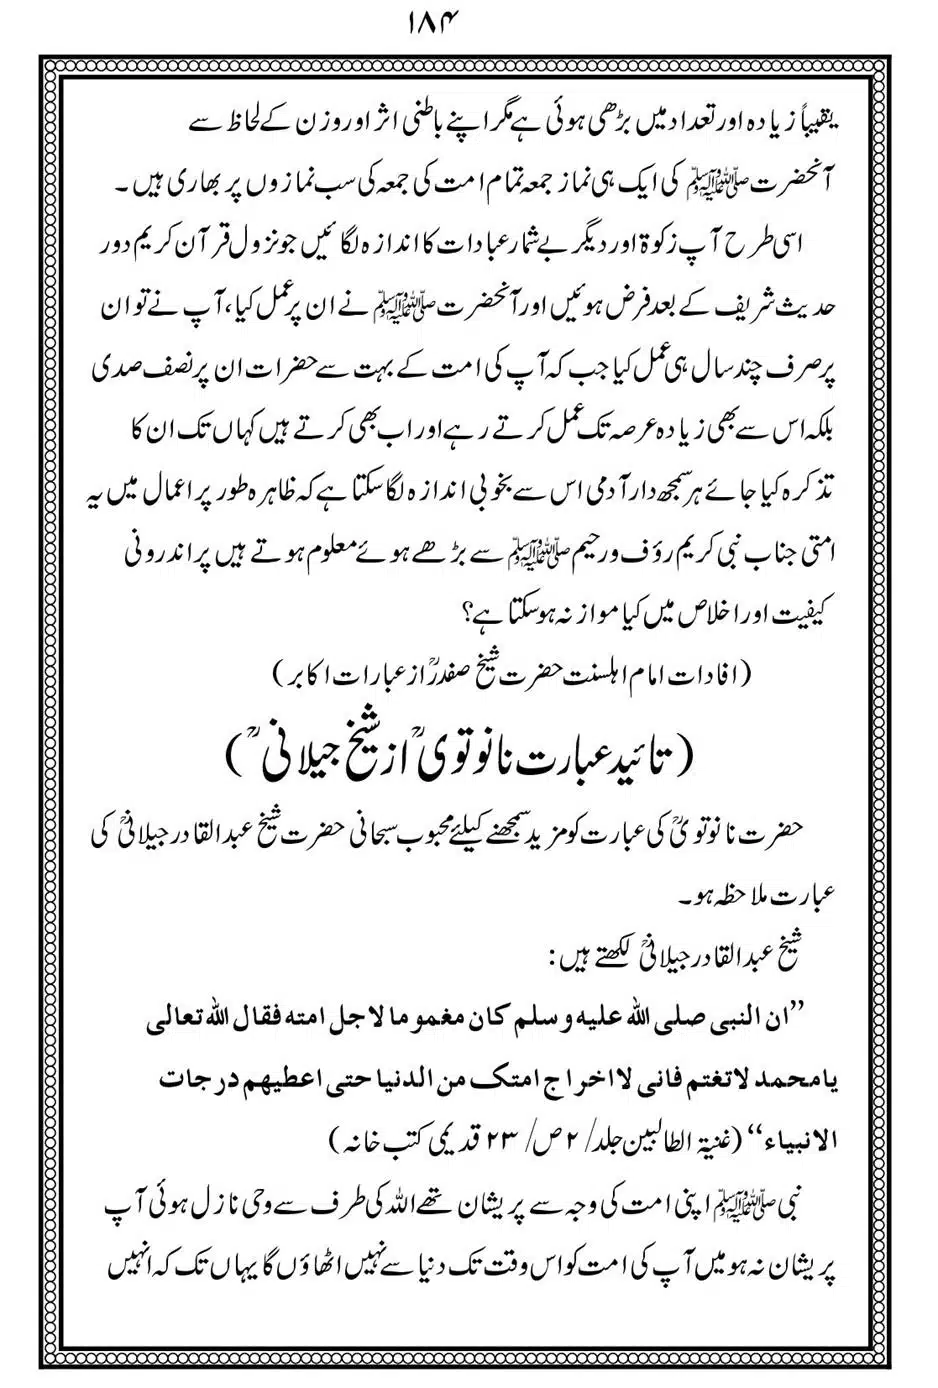 ۱۸۴
یقیناً زیادہ اور تعداد میں بڑھی ہوئی ہے مگر اپنے باطنی اثر اور وزن کے لحاظ سے
آنحضرت ﷺ کی ایک ہی نماز جمعہ تمام امت کی جمعہ کی سب نمازوں پر بھاری ہیں ۔
اسی طرح آپ زکوۃ اور دیگر بے شمار عبادات کا اندازہ لگائیں جو نزول قرآن کریم دور
حدیث شریف کے بعد فرض ہوئیں اور آنحضرت ﷺ نے ان پر عمل کیا، آپ نے تو ان
پر صرف چند سال ہی عمل کیا جب کہ آپ کی امت کے بہت سے حضرات ان پر نصف صدی
بلکہ اس سے بھی زیادہ عرصہ تک عمل کرتے رہے اور اب بھی کرتے ہیں کہاں تک ان کا
تذکرہ کیا جائے ہر سمجھ دار آدمی اس سے بخوبی اندازہ لگا سکتا ہے کہ ظاہرہ طور پر اعمال میں یہ
امتی جناب نبی کریم رؤف ورحیم ﷺ سے بڑھے ہوئے معلوم ہوتے ہیں پر اندرونی
کیفیت اور اخلاص میں کیا موازنہ ہو سکتا ہے؟
(افادات امام اہلسنت حضرت شیخ صفدرؒ از عبارات اکابر)
(تائید عبارت نانوتویؒ از شیخ جیلانیؒ)
حضرت نانوتویؒ کی عبارت کو مزید سمجھنے کیلئے محبوب سبحانی حضرت شیخ عبدالقادر جیلانیؒ کی
عبارت ملاحظہ ہو۔
شیخ عبدالقادر جیلانیؒ لکھتے ہیں:
”ان النبی صلی اللہ علیہ وسلم کان مغموما لاجل امتہ فقال اللہ تعالی
یامحمد لاتغتم فانی لااخراج امتک من الدنیا حتی اعطیھم درجات
الانبیاء“ (غنیۃ الطالبین جلد/ ۲ ص/ ۲۳ قدیمی کتب خانہ)
نبی ﷺ اپنی امت کی وجہ سے پریشان تھے اللہ کی طرف سے وحی نازل ہوئی آپ
پریشان نہ ہو میں آپ کی امت کو اس وقت تک دنیا سے نہیں اٹھاؤں گا یہاں تک کہ انہیں